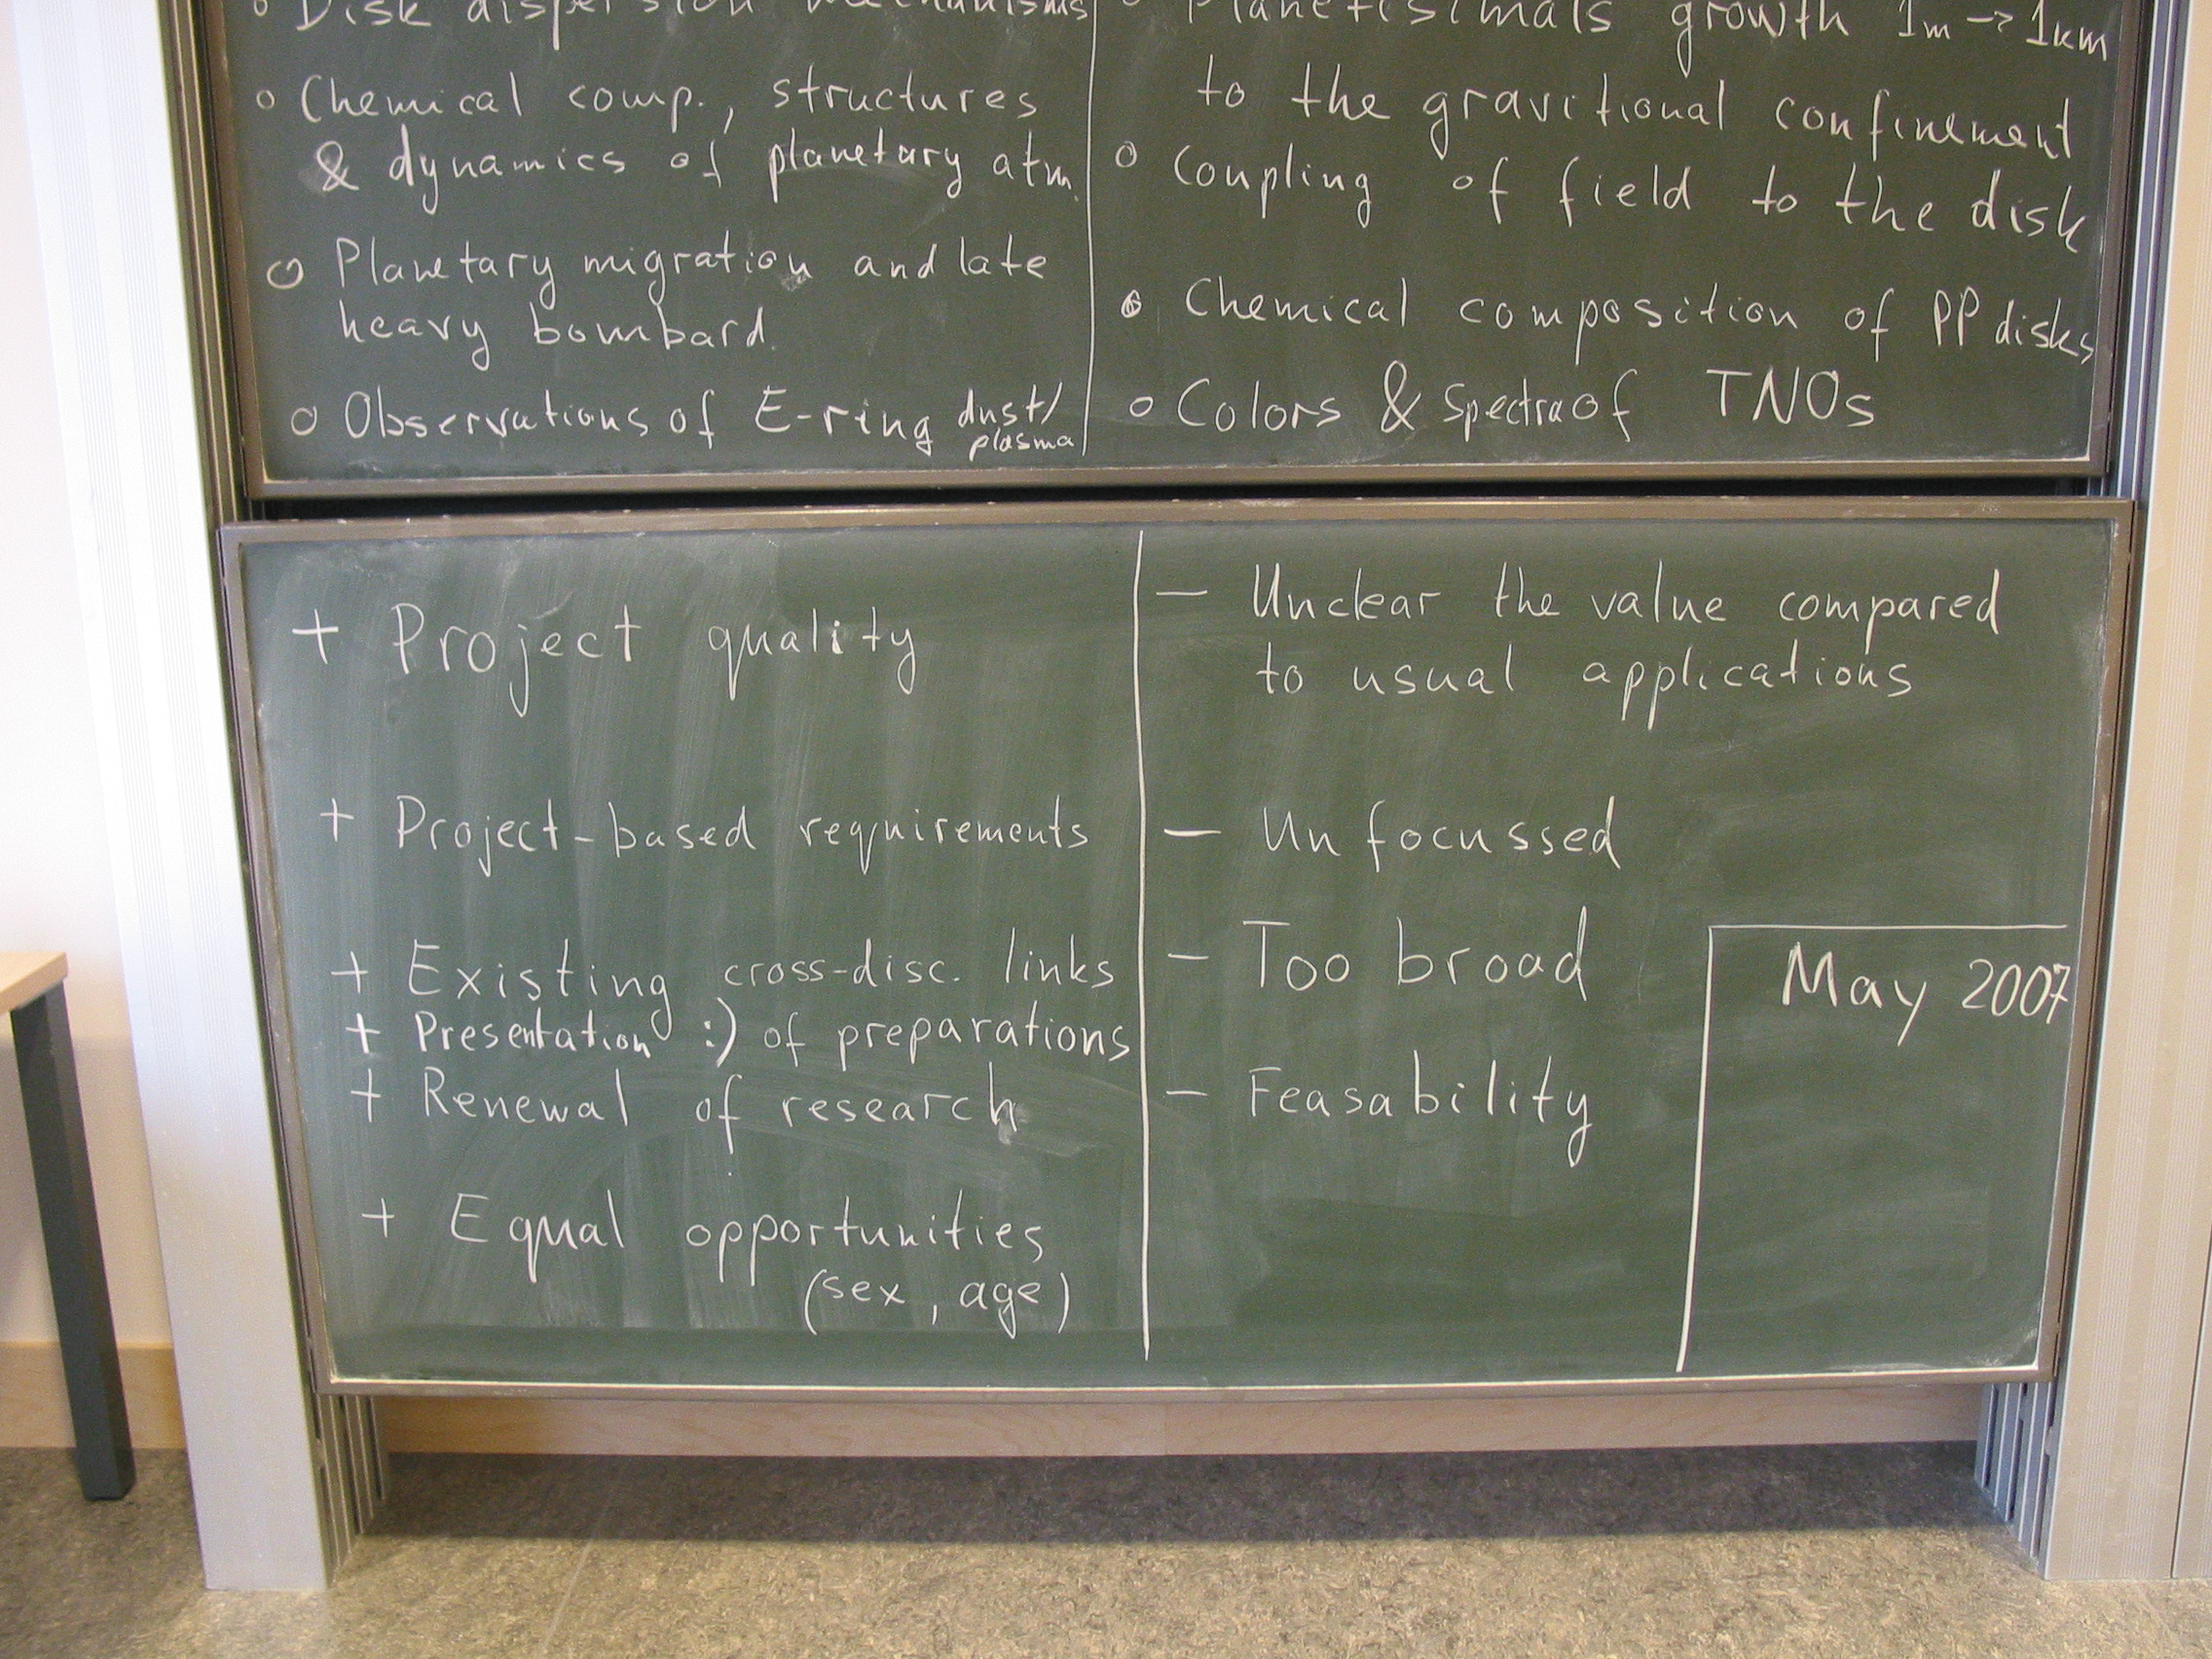 o Disk dispersion mechanisms
o Chemical comp., structures
& dynamics of planetary atm.
o Planetary migration and late
heavy bombard.
o Observations of E-ring dust/
plasma
o Planetisimals growth 1m → 1km
to the gravitional confinement
o Coupling of field to the disk
o Chemical composition of PP disks
o Colors & Spectra of TNOs
+ Project quality
+ Project-based requirements
+ Existing cross-disc. links
+ Presentation :) of preparations
+ Renewal of research
+ Equal opportunities
(sex, age)
— Unclear the value compared
to usual applications
— Unfocussed
— Too broad
— Feasability
May 2007